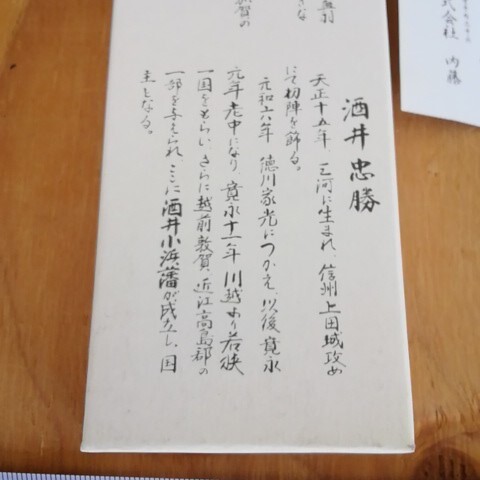 酒井忠勝
天正十五年、三河に生まれ、信州上田城攻め
にて初陣を飾る。
元和六年 徳川家光につかえ、以後寛永
元年老中になり、寛永十一年川越より若狭
一国をもらい、さらに越前敦賀、近江高島郡の
一部を与えられ、ここに酒井小浜藩が成立し、国
主となる。
加賀の
式会社 内藤